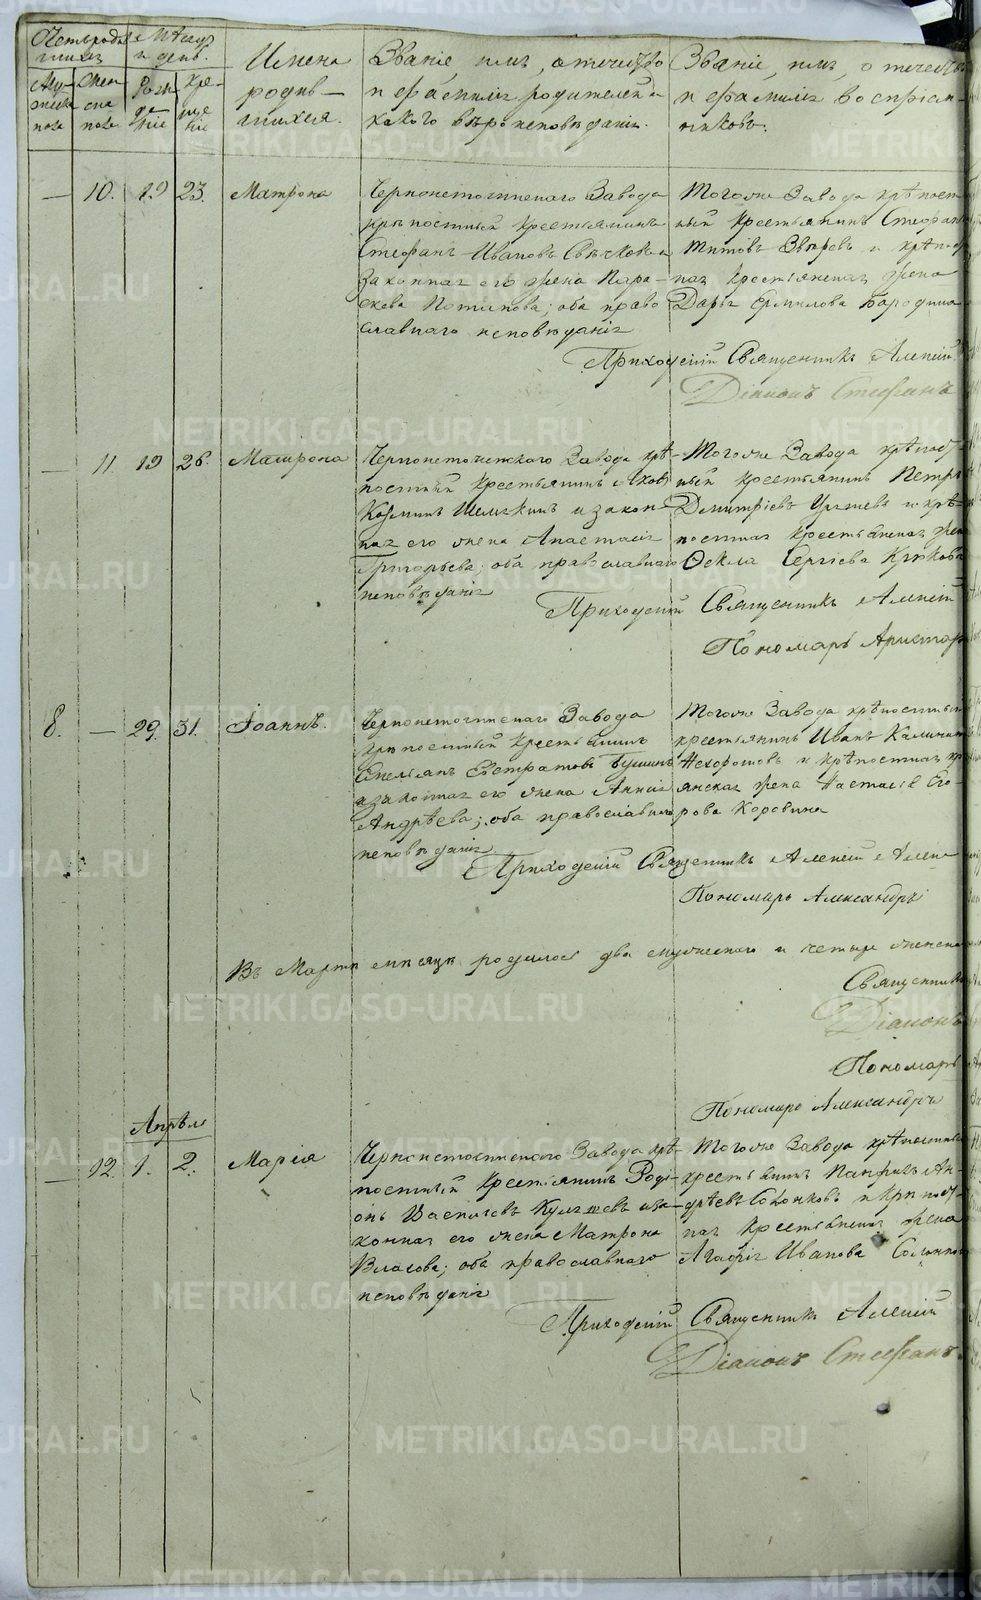 Счетъ родив- Мѣсяцъ
шихся и день.
Имена
родив-
шихся.
Званіе, имя, отечество
и фамилія родителей и
какого вѣроисповѣданія.
Званіе, имя, отечество
и фамилія воспріем-
никовъ.
Му-
жеска
пола
Жен-
ска
пола
Рож-
де-
ніе
Кре-
ще-
ніе
— 10. 19 23. Матрона
Завода
крѣпостный крестьянинъ
Стефанъ Ивановъ
законная его жена Пара-
скева Потапова; оба право
славнаго исповѣданія
Тогоже Завода крѣпост
ный крестьянинъ Стефанъ
Титовъ Звѣревъ и крѣпос
ная крестьянская жена
Дарья Ермилова Бородина
Приходскій Священникъ Алексій
Діаконъ Стефанъ
— 11. 19 26. Матрона
Завода крѣ-
постный крестьянинъ Яковъ
Козминъ и закон-
ная его жена Анастасія
Григорьева; оба православнаго
исповѣданія
Тогоже Завода крѣпост
ный крестьянинъ Петръ
Димитріевъ и крѣ-
постная крестьянская жена
Ѳекла Сергіева Крюкова
Приходскій Священникъ Алексій
Пономарь Аристар
8. — 29. 31. Іоаннъ.
Завода
крѣпостный крестьянинъ
Емельянъ Евстратовъ
и законная его жена Анисія
Андрѣева; оба православнаго
исповѣданія
Тогоже Завода крѣпостный
крестьянинъ Иванъ
Нехорошовъ и крѣпостная кр
янская жена Настасія Его
рова Коровина
Приходскій Священникъ Алексій
Пономарь Александръ
Въ Мартѣ мѣсяцѣ родилось два мужескаго и четыре женска
Священникъ
Діаконъ
Пономарь
Пономарь Александръ
Апрѣль
— 12. 1. 2. Марія
Завода крѣ-
постный крестьянинъ Роді-
онъ Васильевъ и за-
конная его жена Матрона
Власова; оба православнаго
исповѣданія
Тогоже Завода крѣпостный
крестьянинъ Панфилъ Ан-
дрѣевъ и крѣпост-
ная крестьянская жена
Агафія Иванова
Приходскій Священникъ Алексій
Діаконъ Стефанъ
METRIKI.GASO-URAL.RU